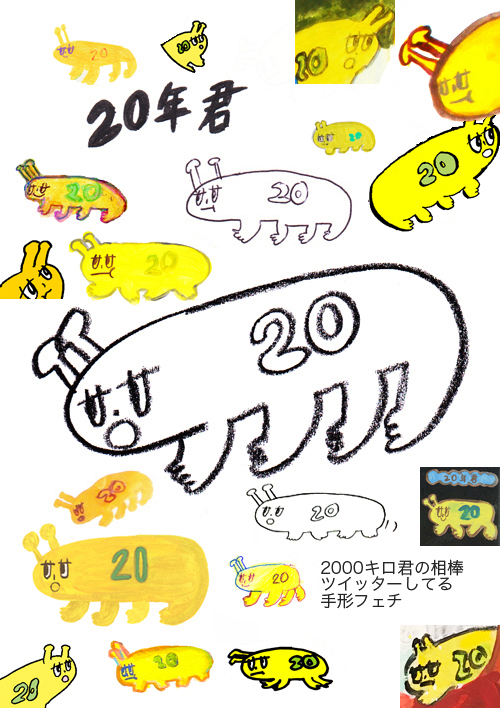 20
20
20
20年君
20
20
20
20
20
20
20
20
20
20年君
20
20
20
2000キロ君の相棒
ツイッターしてる
手形フェチ
20
20
20
20